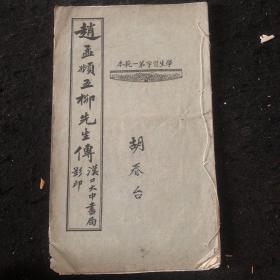 學生習字第一範本
趙孟頫五柳先生傳
漢口大中書局
影印
胡春台